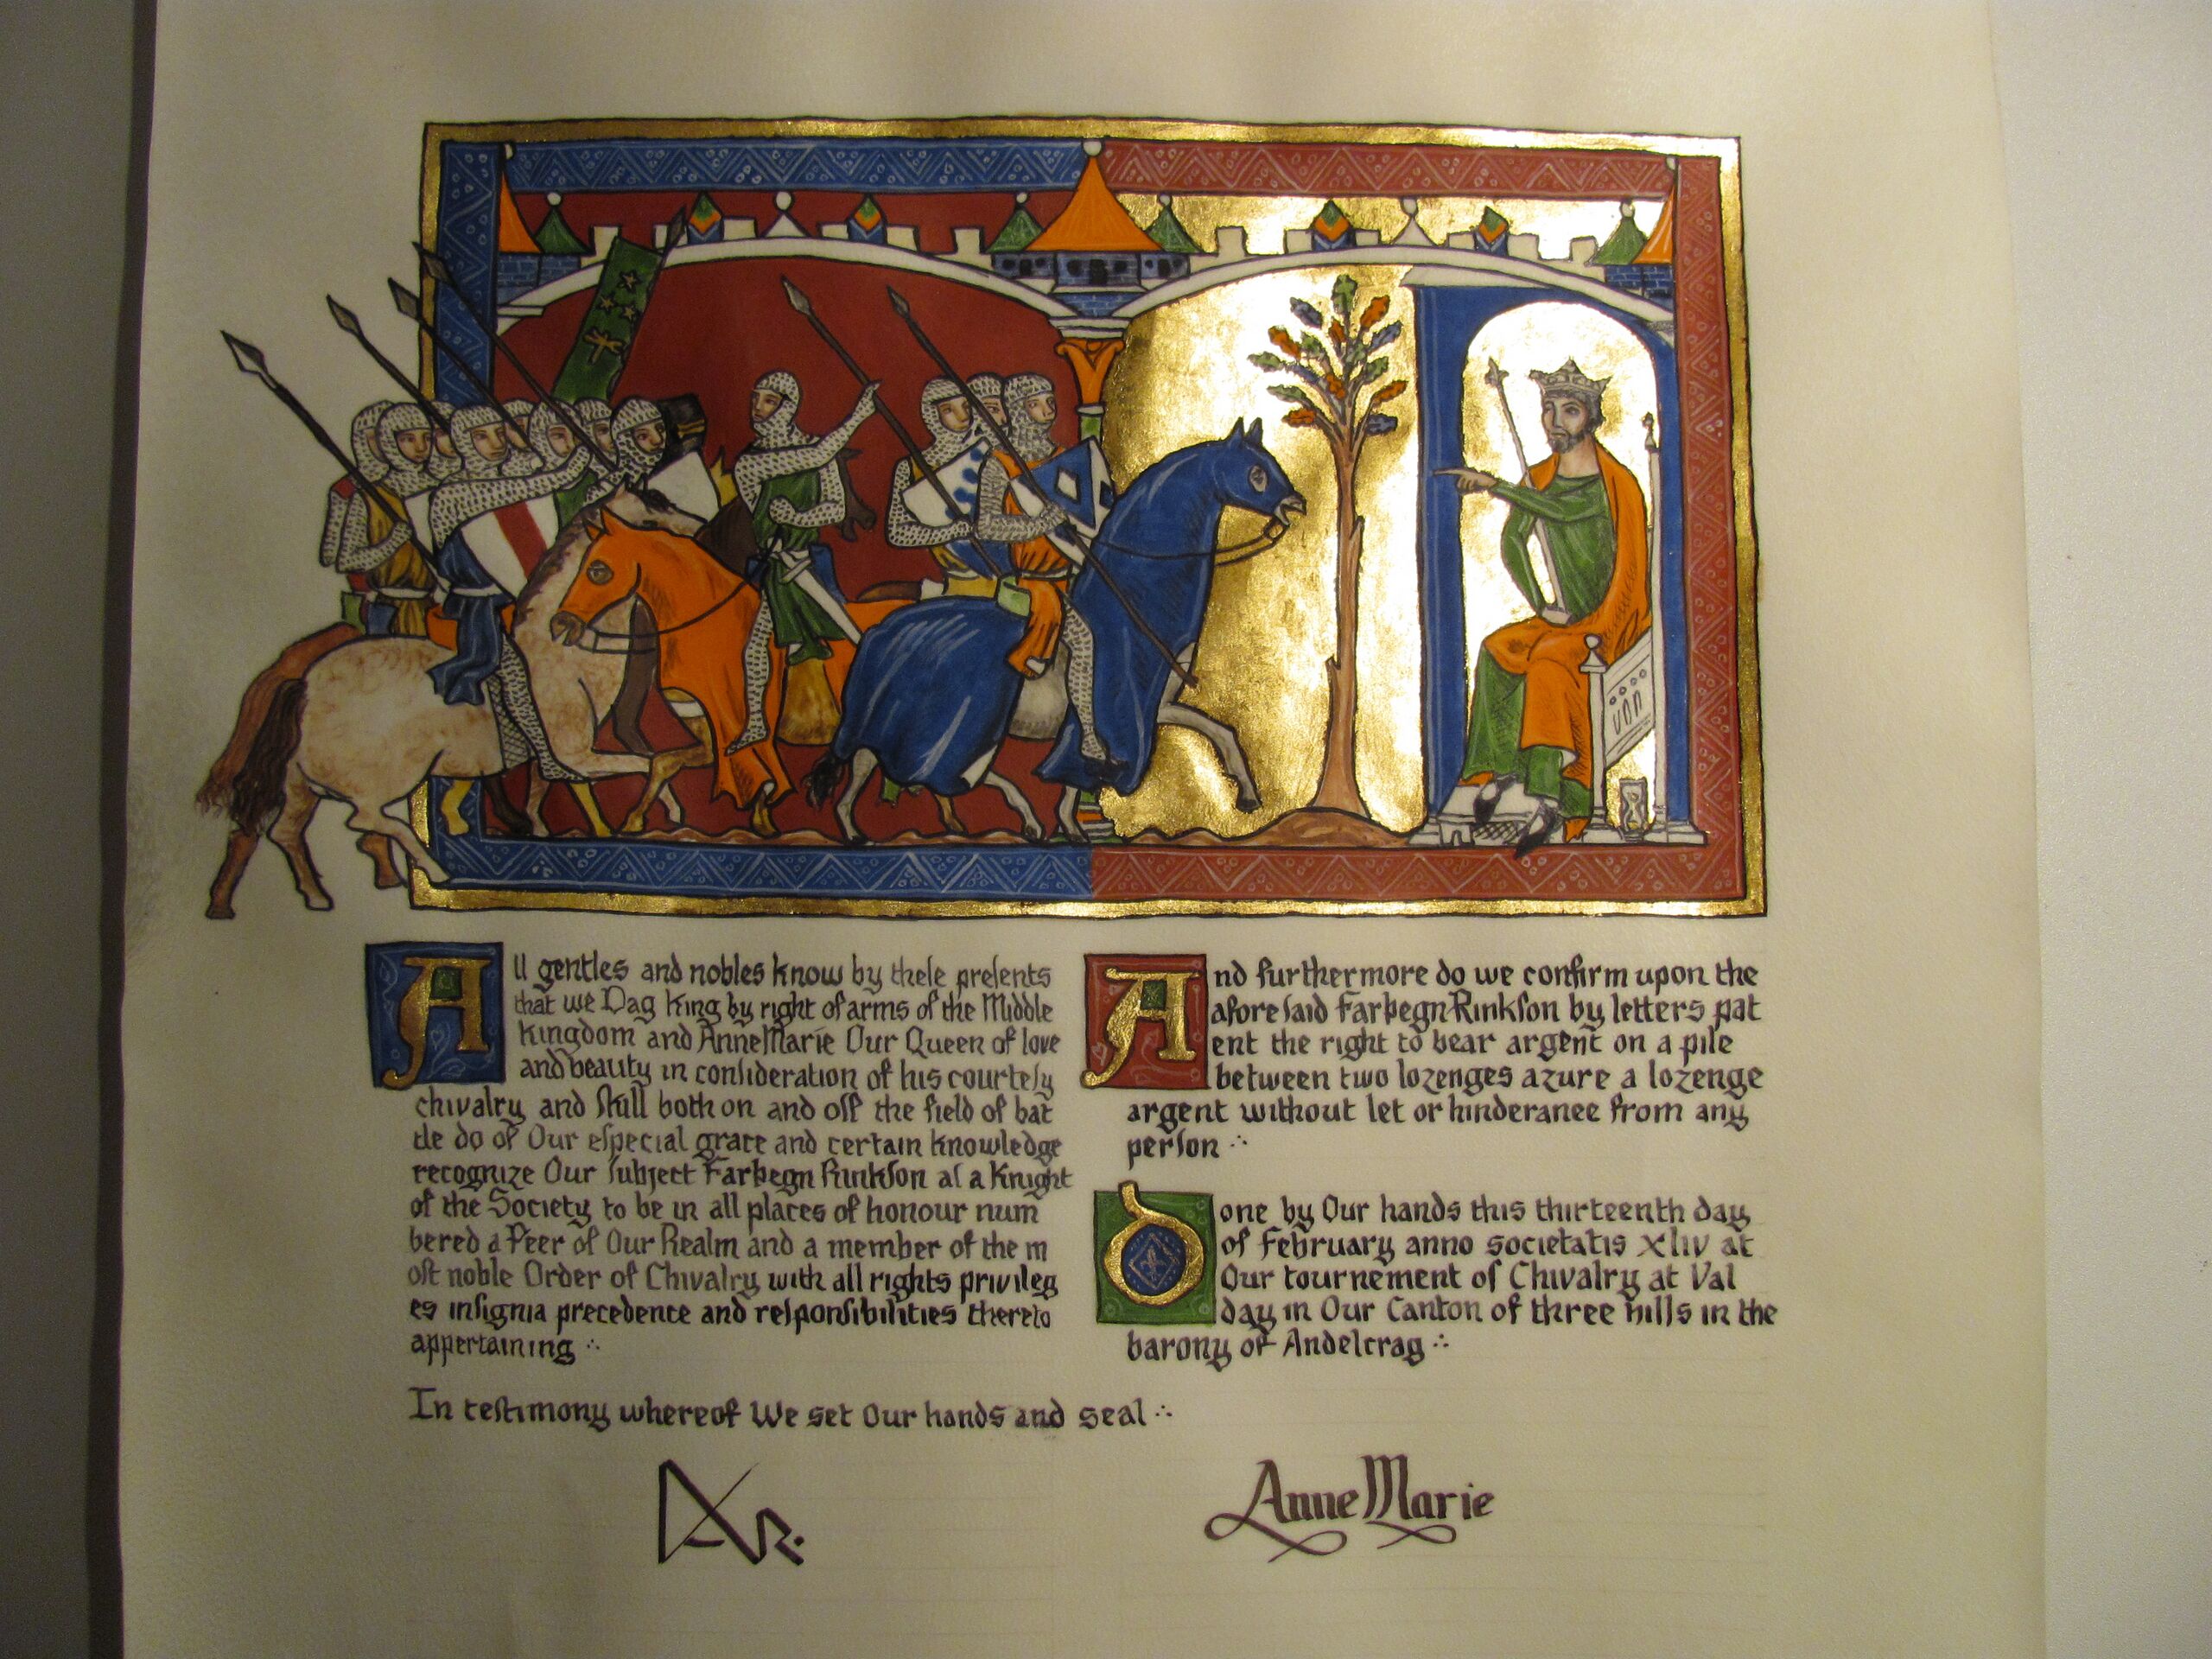 All gentles and nobles know by theſe preſents
that we Dag King by right of arms of the Middle
Kingdom and AnneMarie Our Queen of love
and beauty in conſideration of his courteſy
chivalry and ſkill both on and off the field of bat
tle do of Our eſpecial grace and certain knowledge
recognize Our ſubject Farþegn Rinkſon aſ a Knight
of the Society to be in all places of honour num
bered a Peer of Our Realm and a member of the m
oſt noble Order of Chivalry with all rights privileg
es inſignia precedence and reſponſibilities thereto
appertaining ∴
And furthermore do we confirm upon the
aforeſaid Farþegn Rinkſon by letters pat
ent the right to bear argent on a pile
between two lozenges azure a lozenge
argent without let or hinderance from any
perſon ∴
Done by Our hands this thirteenth day
of February anno societatis xliv at
Our tournement of Chivalry at Val
day in Our Canton of three hills in the
barony of Andelcrag ∴
In teſtimony whereof We set Our hands and seal ∴
AnneMarie